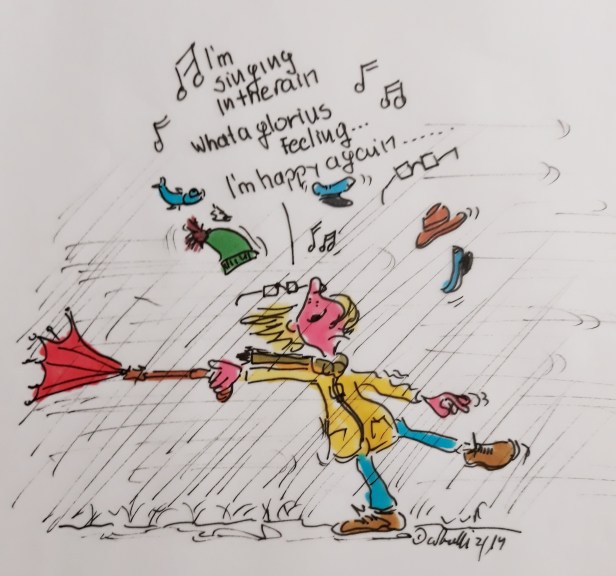 I'm
singing
in the rain
what a glorius
Feeling...
I'm happy again.......